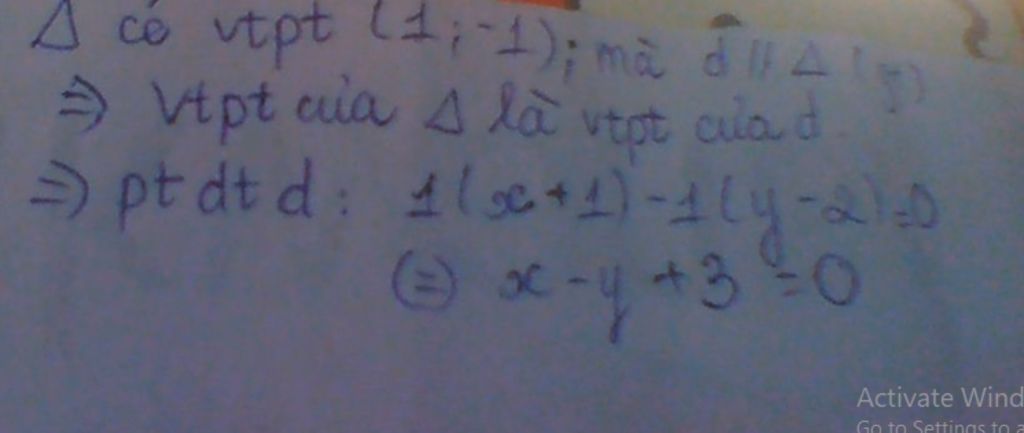 Δ có vtpt (1;-1); mà d // Δ (gt)
⇒ Vtpt của Δ là vtpt của d.
⇒ pt dt d: 1(x+1)-1(y-2)=0
(=) x-y+3=0
Activate Wind
Go to Settings to a